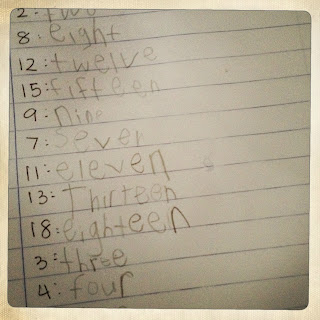 2: two
8: eight
12: twelve
15: fifteen
9: nine
7: Seven
11: eleven
13: Thirteen
18: eighteen
3: three
4: four